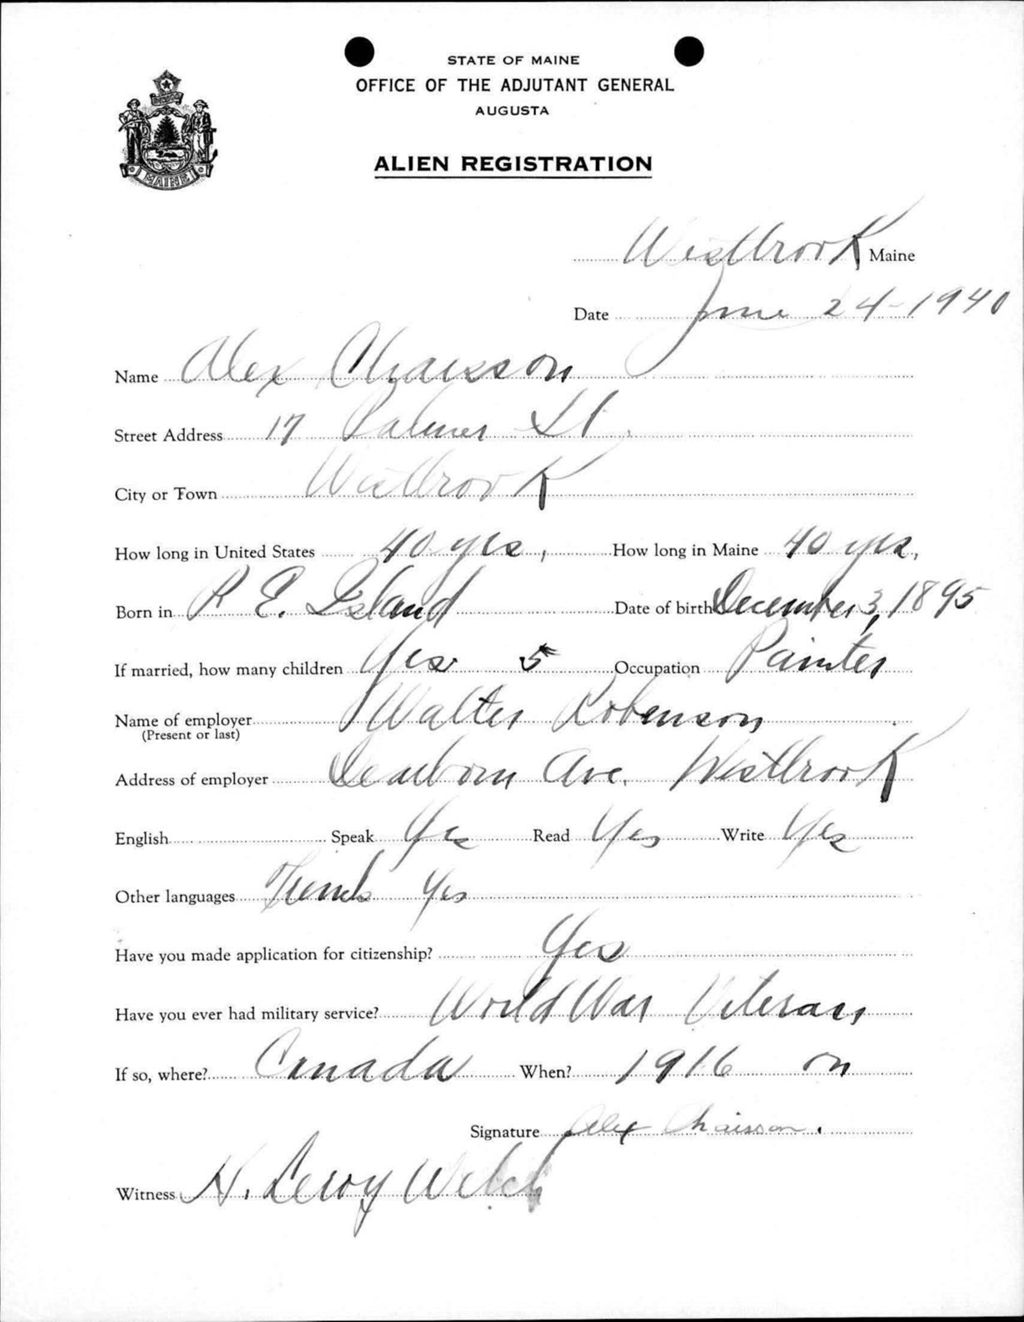 STATE OF MAINE
OFFICE OF THE ADJUTANT GENERAL
AUGUSTA
ALIEN REGISTRATION
MAINE
Westbrook Maine
Date June 24-1940
Name Alex Chaisson
Street Address 17 Palmer St.
City or Town Westbrook
How long in United States 40 yrs, How long in Maine 40 yrs,
Born in P. E. Island Date of birth December 3, 1895
If married, how many children Yes 5 Occupation Painter
Name of employer Walter Robenson
(Present or last)
Address of employer Dearborn Ave. Westbrook
English Speak Yes Read Yes Write Yes
Other languages French Yes
Have you made application for citizenship? Yes
Have you ever had military service? World War Veteran
If so, where? Canada When? 1916 on
Signature Alex Chaisson.
Witness H. Leroy Welch